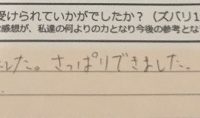 受けられていかがでしたか？（ズバリ1
感想が、私達の何よりの力となり今後の参考とな
した。さっぱりできました。